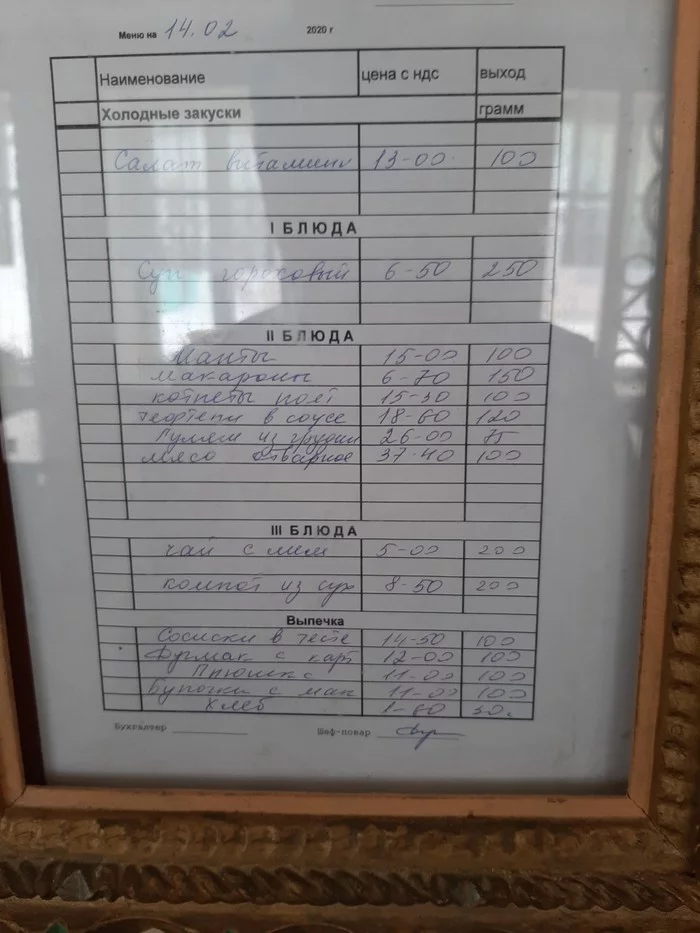 Меню на 14.02 2020 г
Наименование цена с ндс выход
Холодные закуски грамм
Салат витамин 13-00 100
I БЛЮДА
Суп гороховый 6-50 250
II БЛЮДА
Манты 15-00 100
макароны 6-70 150
котлеты пожт 15-30 100
тефтели в соусе 18-60 120
Гуляш из грудки 26-00 75
мясо отварное 37-40 100
III БЛЮДА
чай с лим 5-00 200
компот из сух 8-50 200
Выпечка
Сосиски в тесте 14-50 100
с карт 12-00 100
Плюшка 11-00 100
Булочки с мак 11-00 100
Хлеб 1-60 50г
Бухгалтер Шеф-повар